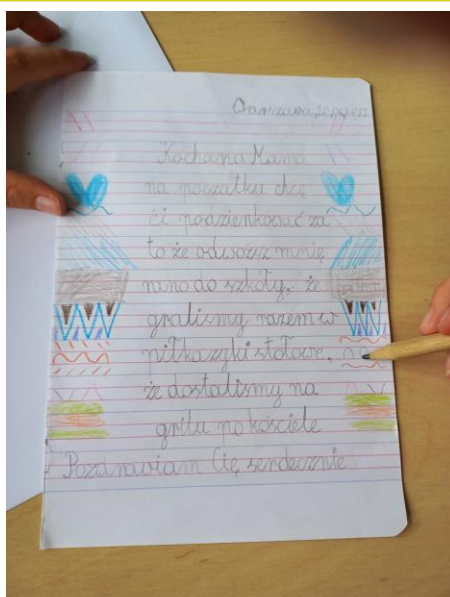 Warszawa 20.09.022
Kochana Mamo
na początku chcę
ci podzienkować za
to że odwozisz mnię
rano do szkóły, że
graliśmy razem w
piłkażyki stołowe,
że dostaliśmy na
grilu po kościele
Pozdrawiam Cię serdecznie